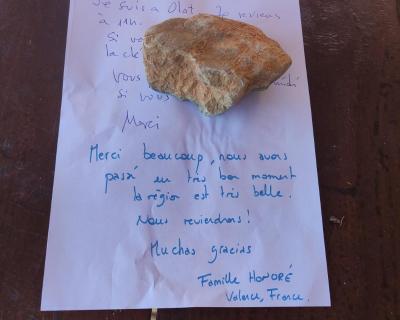 Je suis a Olot. Je reviens
à 11h.
Si
la cle
Vous
Si vous
Merci
Merci beaucoup, nous avons
passé un très bon moment
la région est très belle.
Nous reviendrons!
Muchas gracias
Famille HONORÉ
Valence, France.